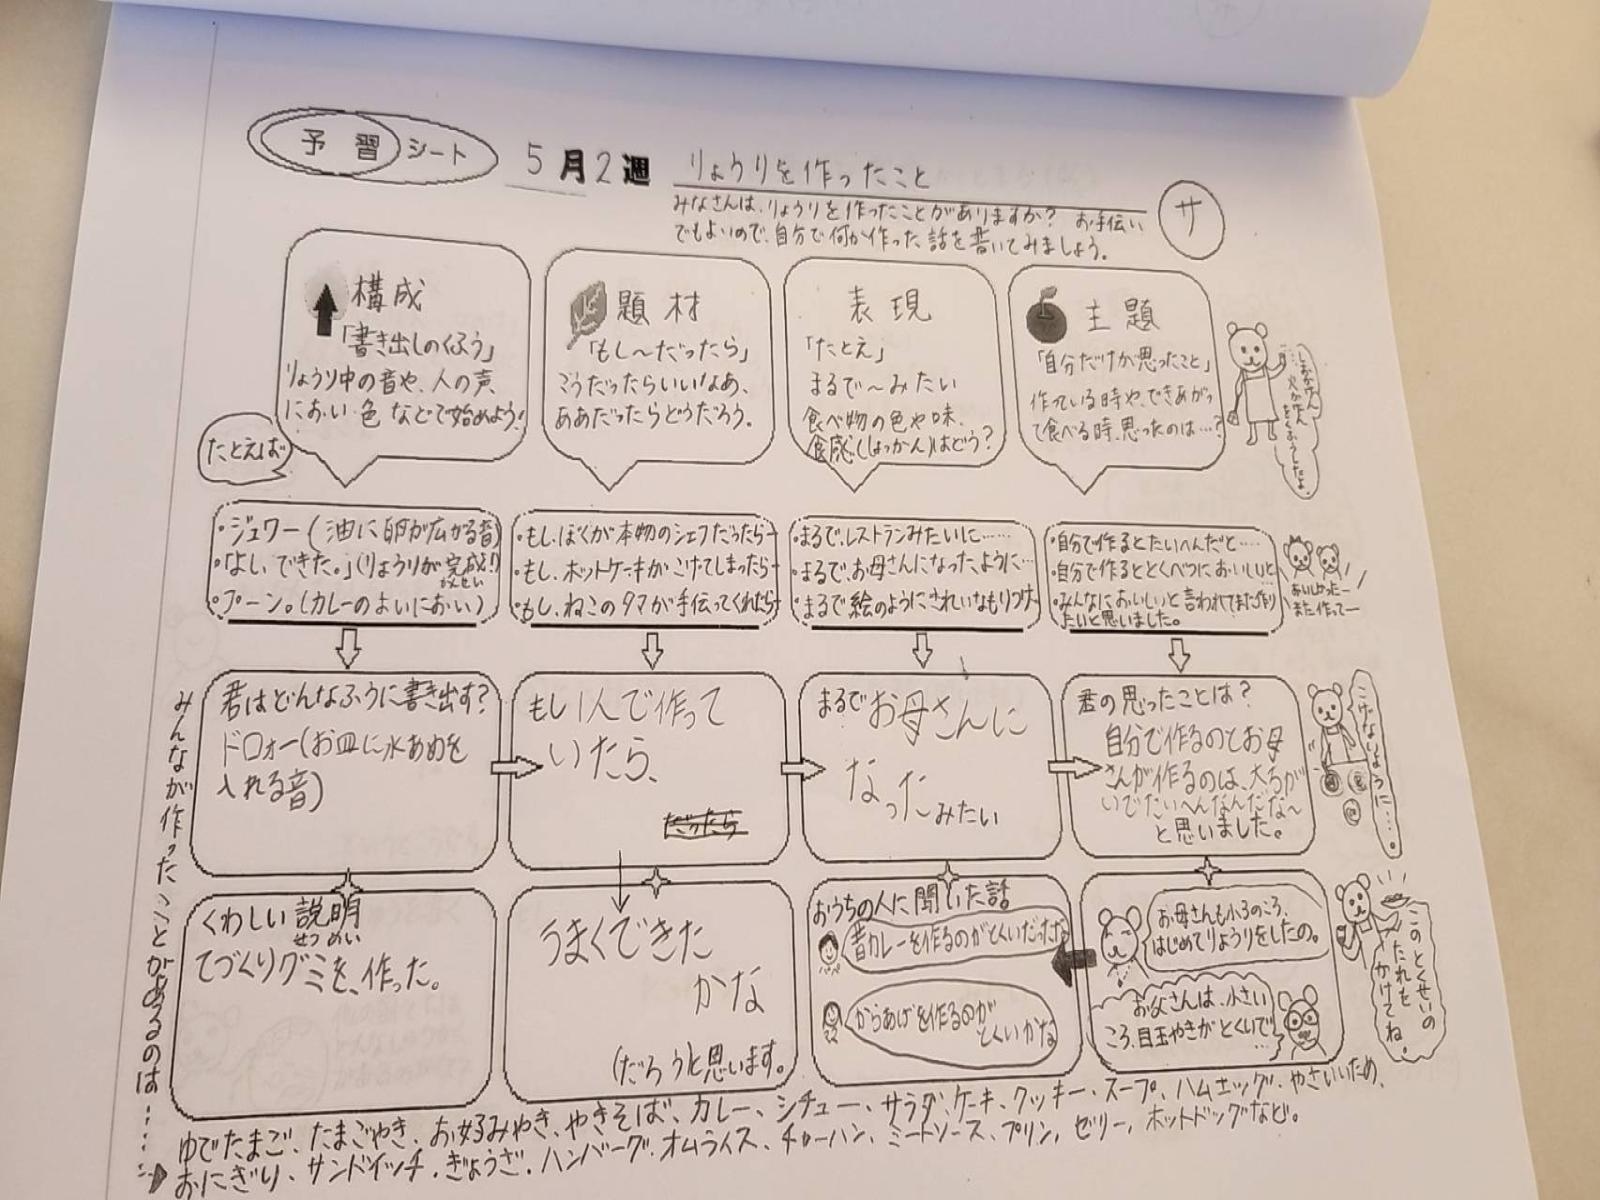 予習シート
5月2週
りょうりを作ったこと
みなさんは、りょうりを作ったことがありますか? お手伝い
でもよいので、自分で何か作った話を書いてみましょう。
サ
構成
「書き出しのくふう」
りょうり中の音や、人の声、
におい 色 などで始めよう!
題材
「もし〜だったら」
こうだったらいいなあ、
ああだったらどうだろう。
表現
「たとえ」
まるで〜みたい
食べ物の色や味、
食感(しょっかん)はどう?
主題
「自分だけが思ったこと」
作っている時や、できあがっ
て食べる時、思ったのは…?
たとえば
・ジュワー(油に卵が広がる音)
・「よし、できた。」(りょうりが完成!!)
かんせい
・プーン。(カレーのよいにおい)
・もし、ぼくが本物のシェフだったら
・もし、ホットケーキがこげてしまったら
・もし、ねこのタマが手伝ってくれたら
・まるで、レストランみたいに……
・まるで、お母さんになったように…
・まるで絵のようにきれいなもりつけ
・自分で作るとたいへんだと…
・自分で作るととくべつにおいしいと
・みんなにおいしいと言われてまた作り
たいと思いました。
おいしかったー
また作ってー
君はどんなふうに書き出す?
ドロォー(お皿に水あめを
入れる音)
もし1人で作って
いたら、
だったら
まるでお母さんに
なったみたい
君の思ったことは?
自分で作るのとお母
さんが作るのは、大ちが
いでたいへんなんだな〜
と思いました。
こげないように…。
くわしい説明
せつめい
てづくりグミを、作った。
うまくできた
かな
(だろう)と思います。
おうちの人に聞いた話
昔カレーを作るのがとくいだった
からあげを作るのが
とくいかな
お母さんも小3のころ、
はじめてりょうりをしたの。
お父さんは、小さい
ころ、目玉やきがとくいで…
このとくせいの
たれを
かけてね!
みんなが作ったことがあるのは……
ゆでたまご、たまごやき、お好みやき、やきそば、カレー、シチュー、サラダ、ケーキ、クッキー、スープ、ハムエッグ、やさいいため、
おにぎり、サンドイッチ、ぎょうざ、ハンバーグ、オムライス、チャーハン、ミートソース、プリン、ゼリー、ホットドッグなど。